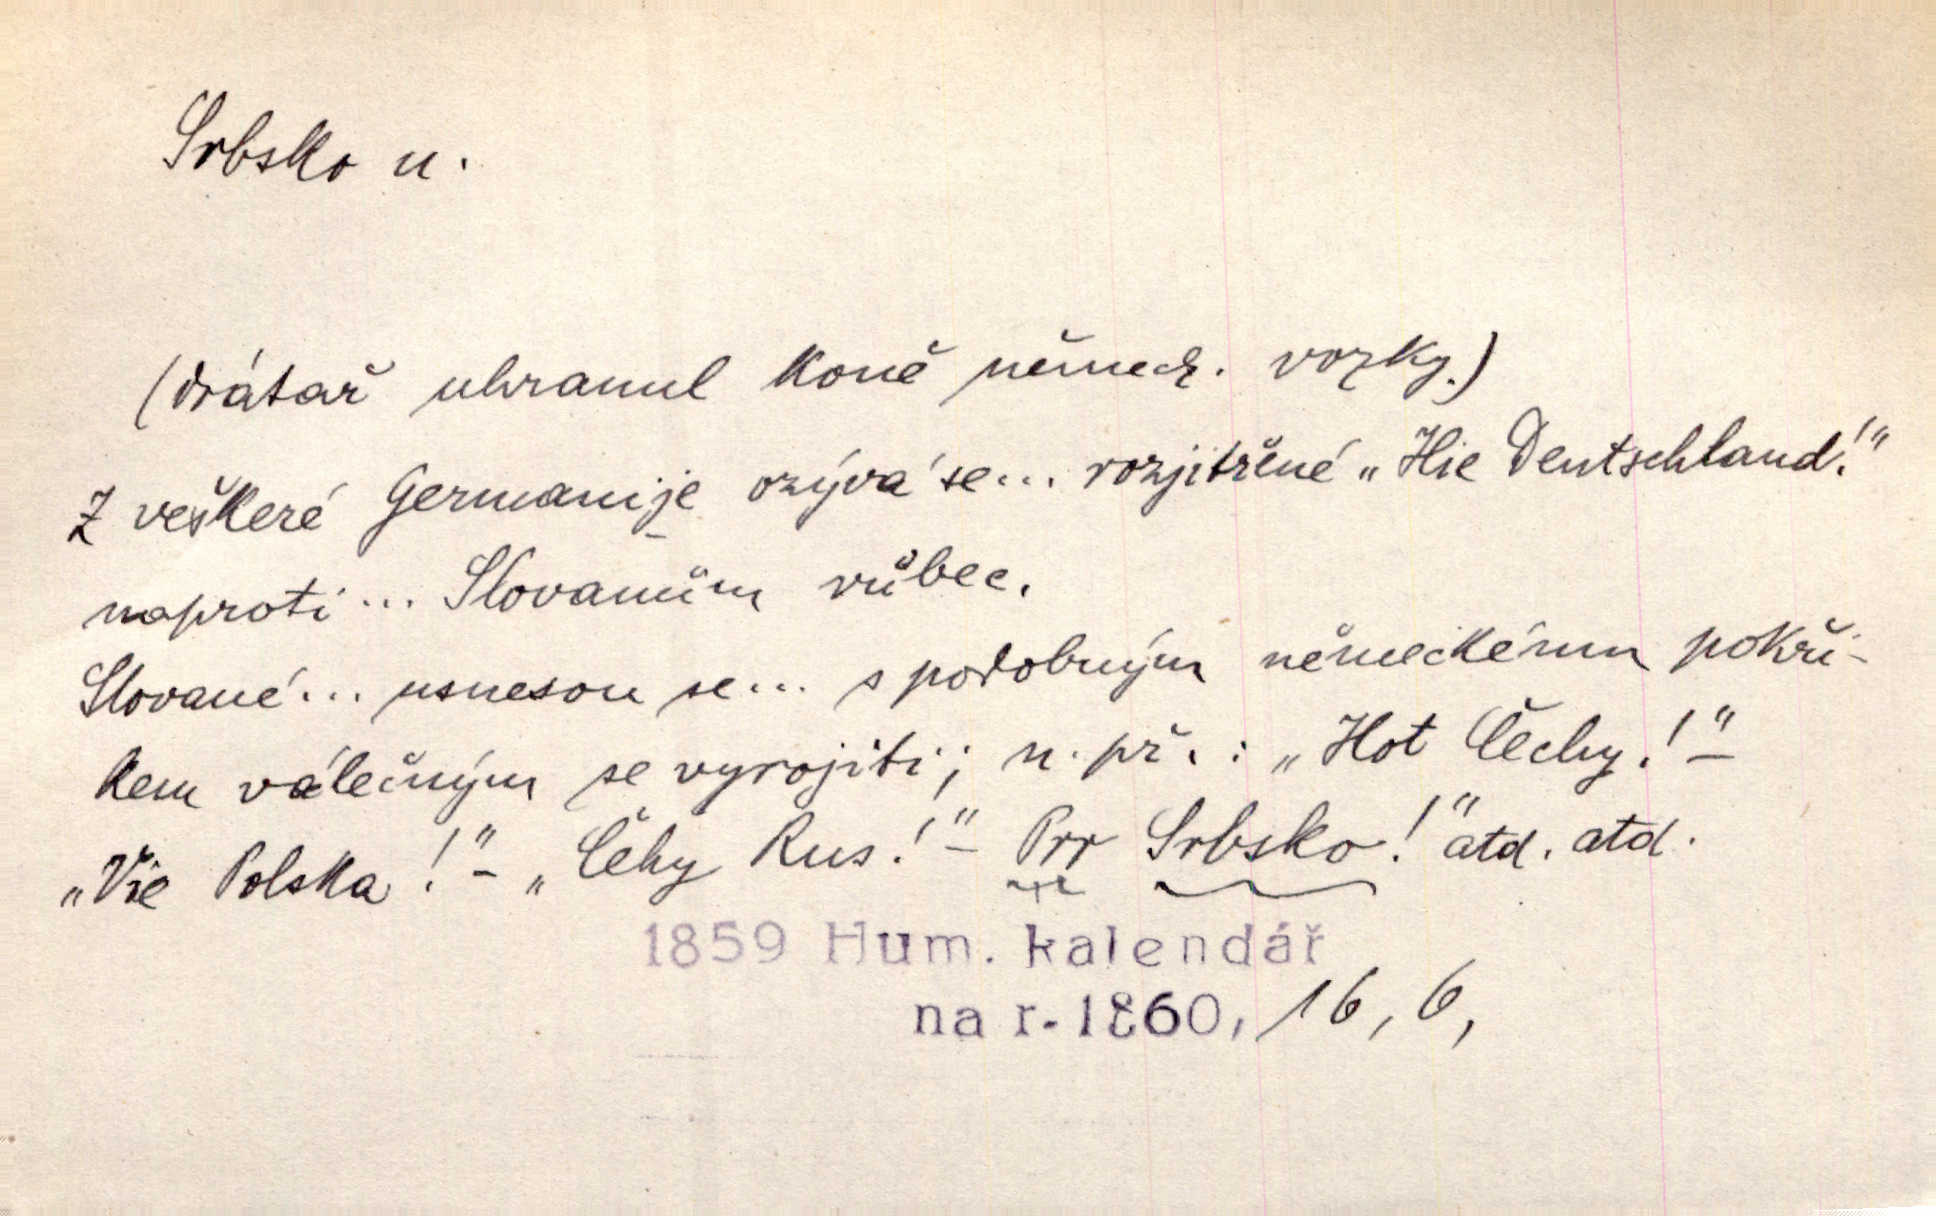 Srbsko n.
(drátař uhranul koně německ. vozky.)
Z veškeré Germanije ozývá se... rozjitřené „Hie Deutschland!“
naproti... Slovanům vůbec.
Slované... usnesou se... s podobným německému pokři-
kem válečným se vyrojiti; n. př. : „Hot Čechy!“ –
„Vie Polska!“ – „Čehy Rus!“ – Prr Srbsko!“ atd. atd.
1859 Hum. kalendář
na r. 1860, 16, 6,